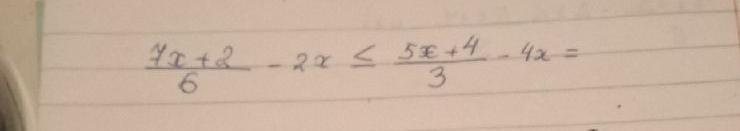 (7x+2)/6 - 2x ≤ (5x+4)/3 - 4x =